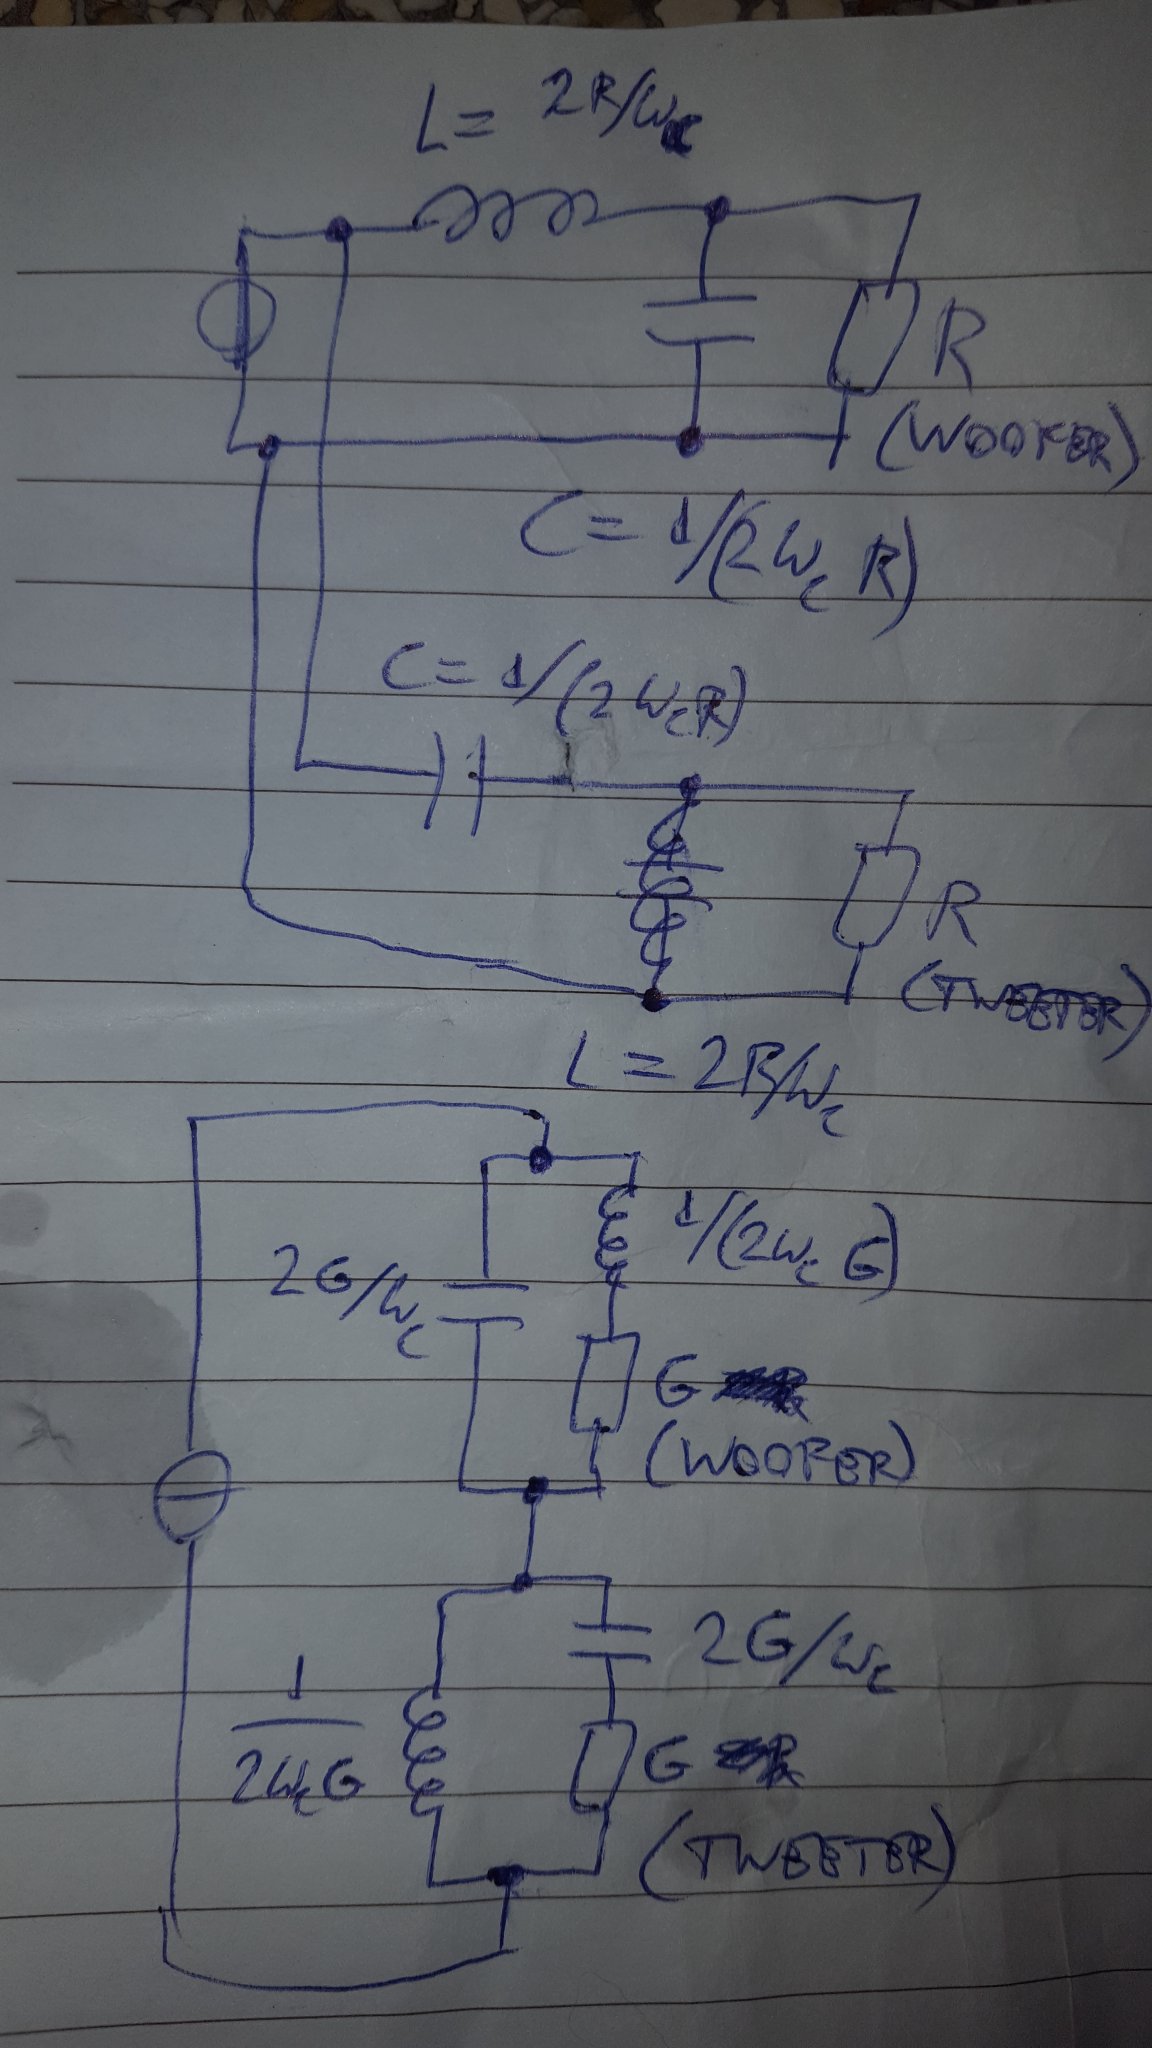 L = 2R/ωc
R
(WOOFER)
C = 1/(2ωc R)
C = 1/(2ωcR)
R
(TWEETER)
L = 2R/ωc
1/(2ωc G)
2G/ωc
G
(WOOFER)
2G/ωc
1
2ωcG
G
(TWEETER)